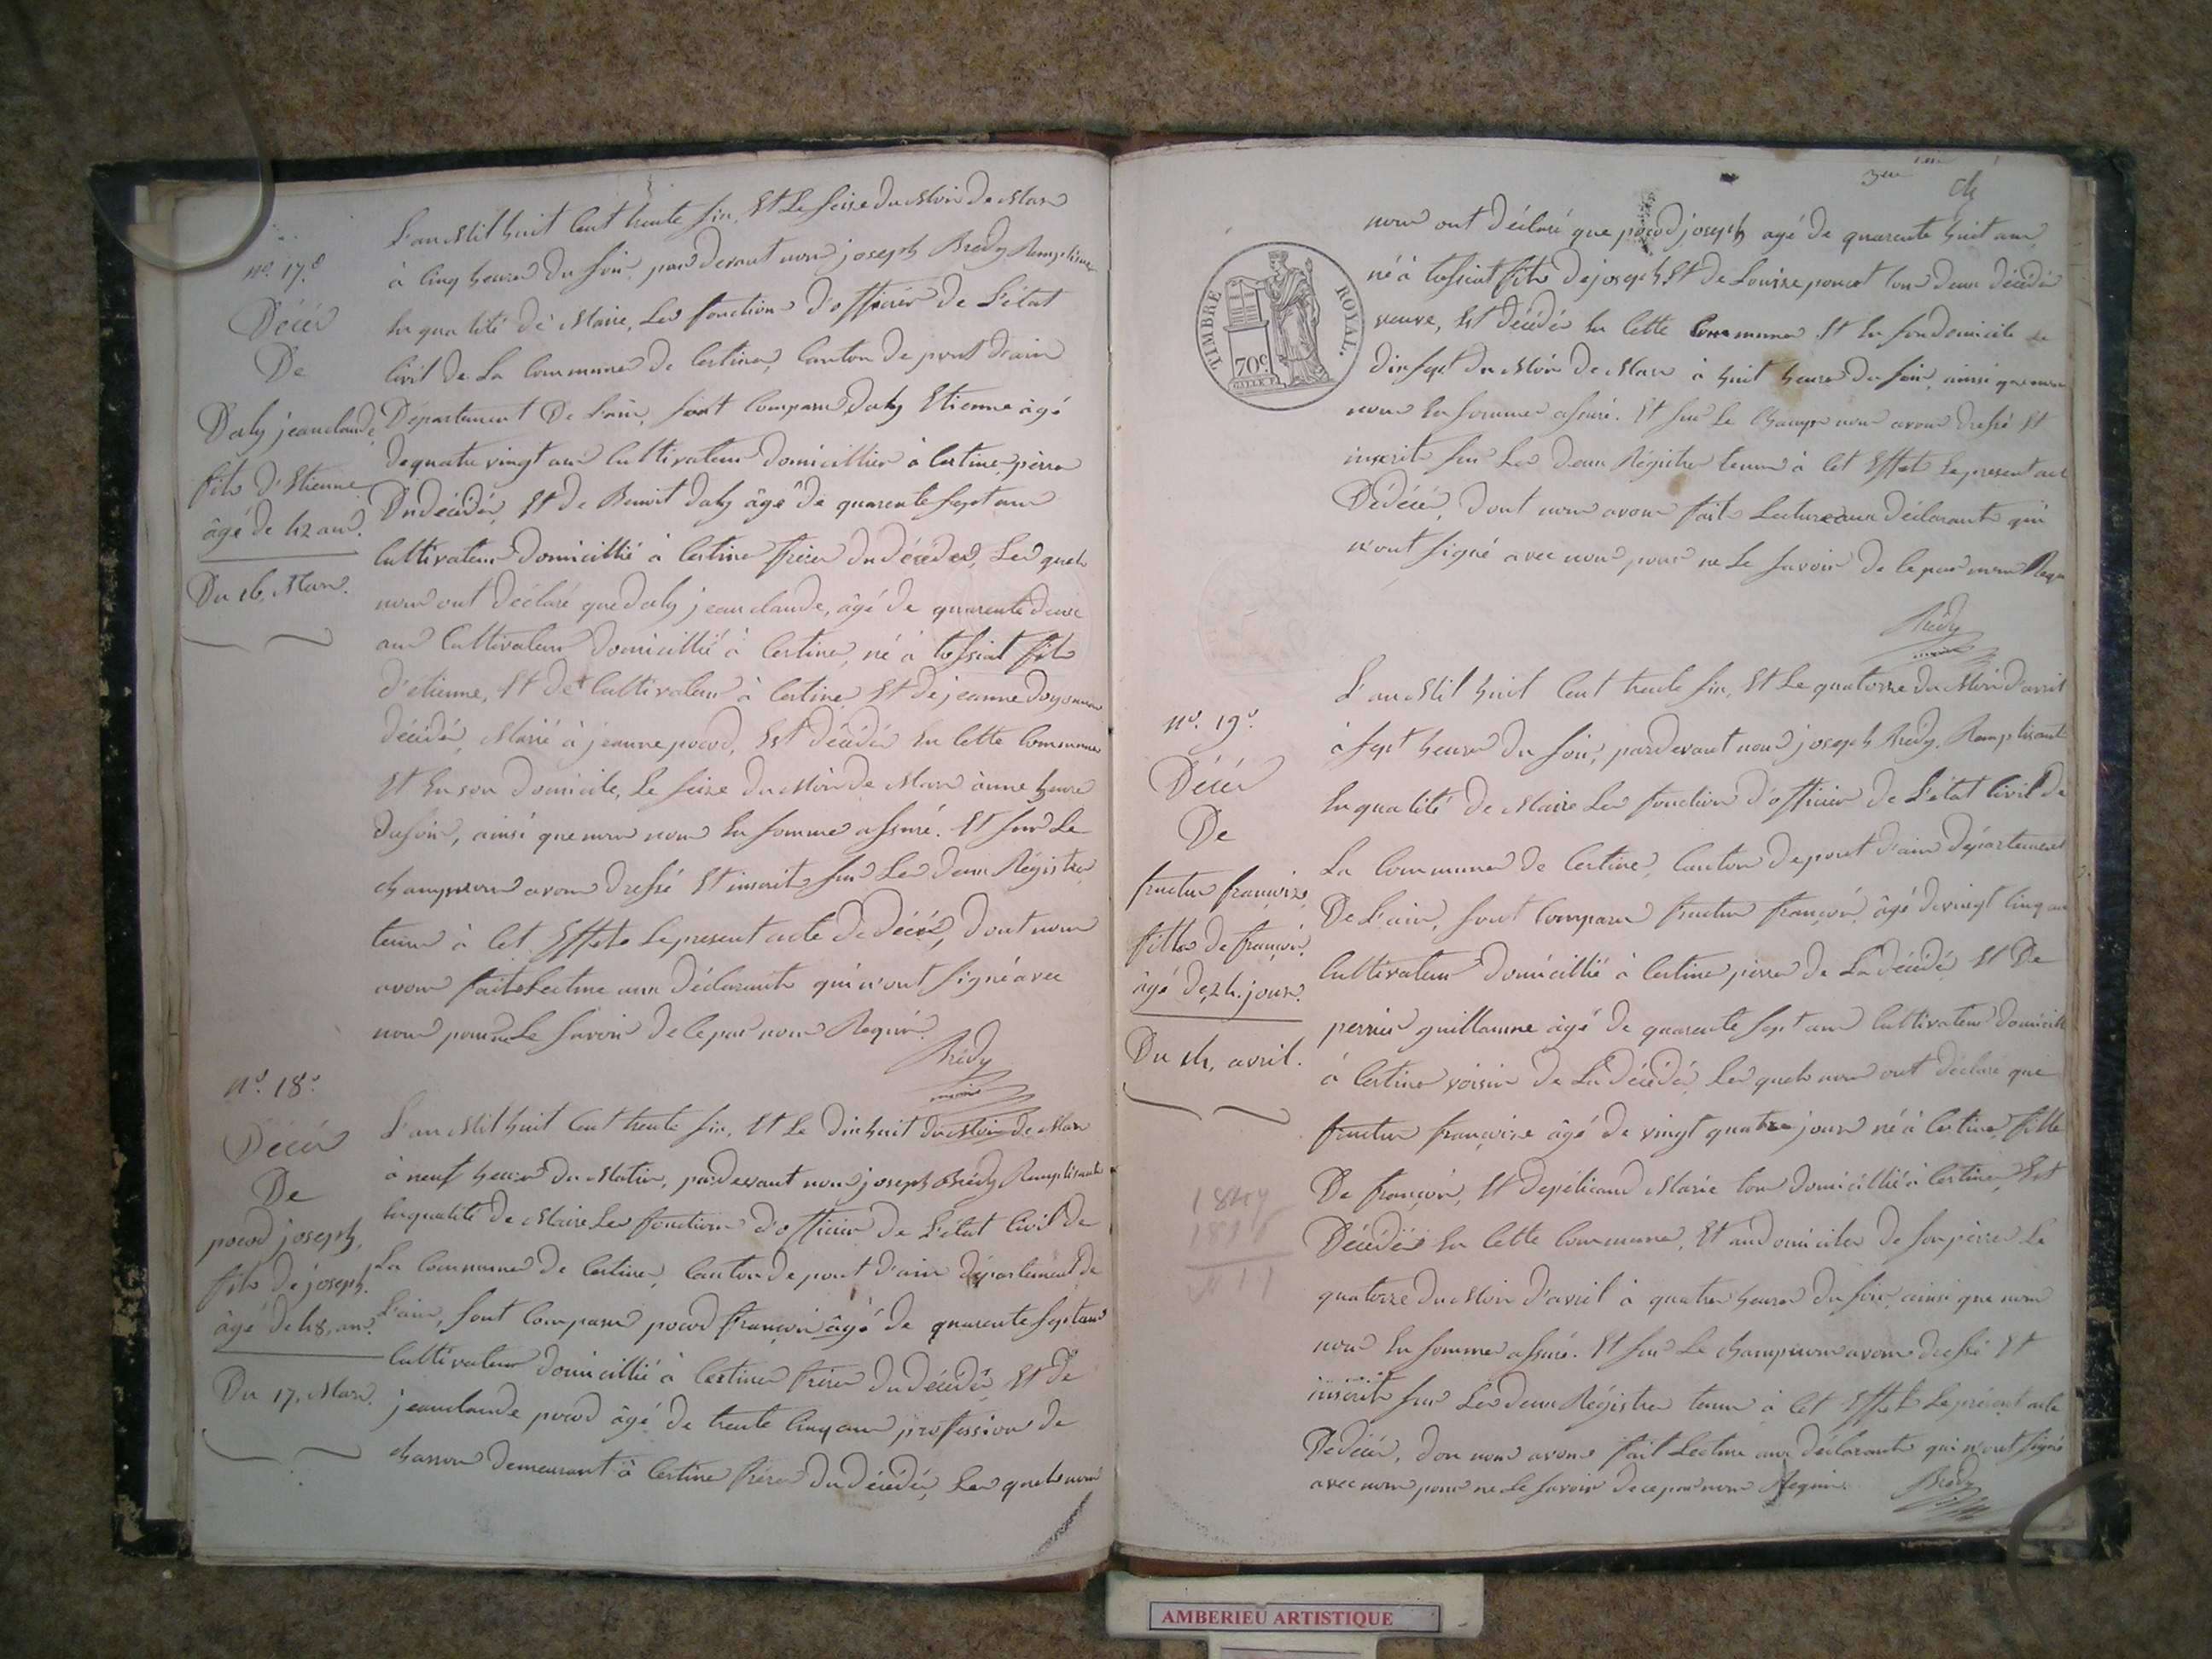 nº. 17.e
Décès
De
Daly jean claude,
fils d'Etienne
âgé de 42 ans.
Du 16, Mars.
L'an Mil huit Cent trente six, Et Le seize du Mois de Mars
à Cinq heures du soir, par devant nous joseph Bredy Remplissant
En qualité de Maire, Les fonctions d'officier de L'état
Civil de La Commune de Certines, Canton de pont d'ain
Département De L'ain, sont Comparus Daly Etienne âgé
de quatre vingt ans Cultivateur domicillier à Certines père
Du décédé, Et de Benoit daly âgé de quarente sept ans
Cultivateur Domicillié à Certines frère du décédé, Les quels
nous ont déclaré que daly jean claude, âgé de quarente deux
ans Cultivateur Domicillié à Certines, né à tossiat fils
d'étienne, Et de Cultivateur à Certines Et de jeanne
décédés, Marié à jeanne pocod, Est décédé En Cette Commune
Et En son Domicile, Le seize du Mois de Mars à une heure
du soir, ainsi que nous nous En sommes assuré. Et sur Le
champ nous avons dressé Et inscrit sur Les deux Régistres
tenus à Cet Effet Le present acte de décès, dont nous
avons fait Lecture aux Déclarants qui n'ont signé avec
nous pour ne Le savoir de Ce par nous Requis.
Bredy
nº. 18.e
Décès
De
pocod joseph,
fils de joseph.
âgé de 48, ans.
Du 17, Mars.
L'an Mil huit Cent trente six, Et Le dix huit du Mois de Mars
à neuf heures du Matin, par devant nous joseph Bredy Remplissant
En qualité de Maire Les fonctions d'officier de L'état Civil de
La Commune de Certines, Canton de pont d'ain département de
L'ain, sont Comparus pocod françois âgé de quarente sept ans
Cultivateur domicillié à Certines frère du décédé, Et de
jean claude pocod âgé de trente Cinq ans profession de
charron demeurant à Certines frère du décédé, Les quels nous
3me
nous ont déclaré que pocod joseph agé de quarente huit ans
né à tossiat fils de joseph Et de Louise poncet tous deux décédés
veuve, Est décédé En Cette Commune Et En son domicile Le
dix sept du Mois de Mars à huit heures du soir, ainsi que nous
nous En sommes assuré. Et sur Le Champ nous avons dressé Et
inscrit sur Les deux Régistres tenus à Cet Effet Le present acte
De décès, dont nous avons fait Lecture aux déclarants qui
n'ont signé avec nous pour ne Le savoir de Ce par nous Requis
Bredy
TIMBRE ROYAL.
70c
nº. 19.e
Décès
De
françoise,
fille de françois.
âgé de 24. jours.
Du 14, avril.
L'an Mil huit Cent trente six, Et Le quatorze du Mois d'avril
à sept heures du soir, par devant nous joseph Bredy, Remplissant
En qualité de Maire Les fonctions d'officier de L'état Civil de
La Commune de Certines, Canton de pont d'ain département
De L'ain, sont Comparus françois, âgé de vingt Cinq ans
Cultivateur domicillié à Certines père de La décédé Et De
perrier guillaume âgé de quarente sept ans Cultivateur domicillié
à Certines voisin de La décédé, Les quels nous ont déclaré que
françoise âgé de vingt quatre jours né à Certines, fille
De françois, Et de pélicand Marie tous domicillié à Certines, Est
Décédés En Cette Commune, Et au domicile de son père Le
quatorze du Mois d'avril à quatre heures du soir, ainsi que nous
nous En sommes assuré. Et sur Le champ nous avons dressé Et
inscrit sur Les deux Régistres tenus à Cet Effet Le présent acte
De décès, don nous avons fait Lecture aux déclarants qui n'ont signé
avec nous pour ne Le savoir de ce par nous Requis.
Bredy
AMBERIEU ARTISTIQUE